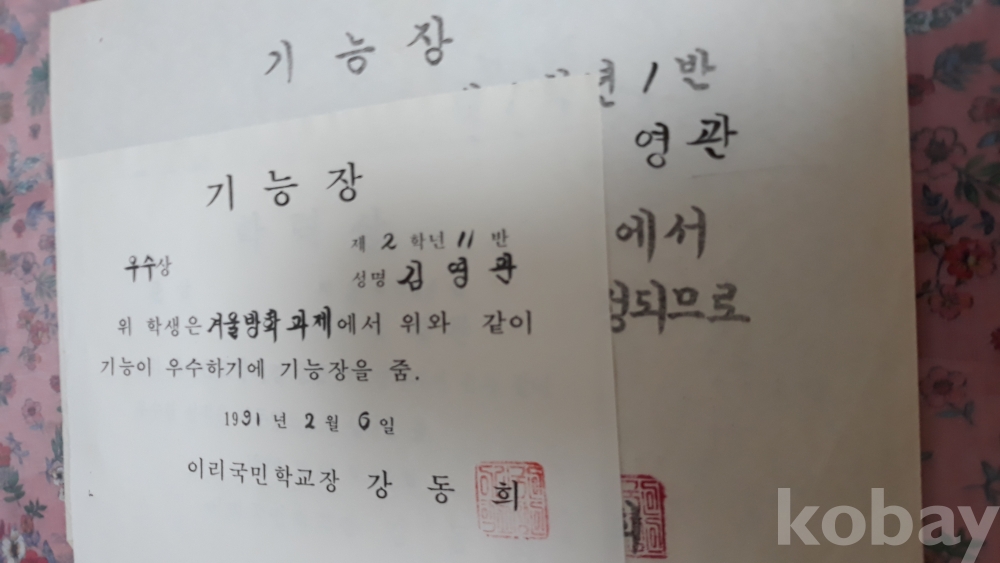 기능장
1반
영관
에서
되므로
기능장
제 2 학년 11 반
우수상
성명 김영관
위 학생은 겨울방학과제에서 위와 같이
기능이 우수하기에 기능장을 줌.
1991 년 2 월 6 일
이리국민학교장 강동희
kobay